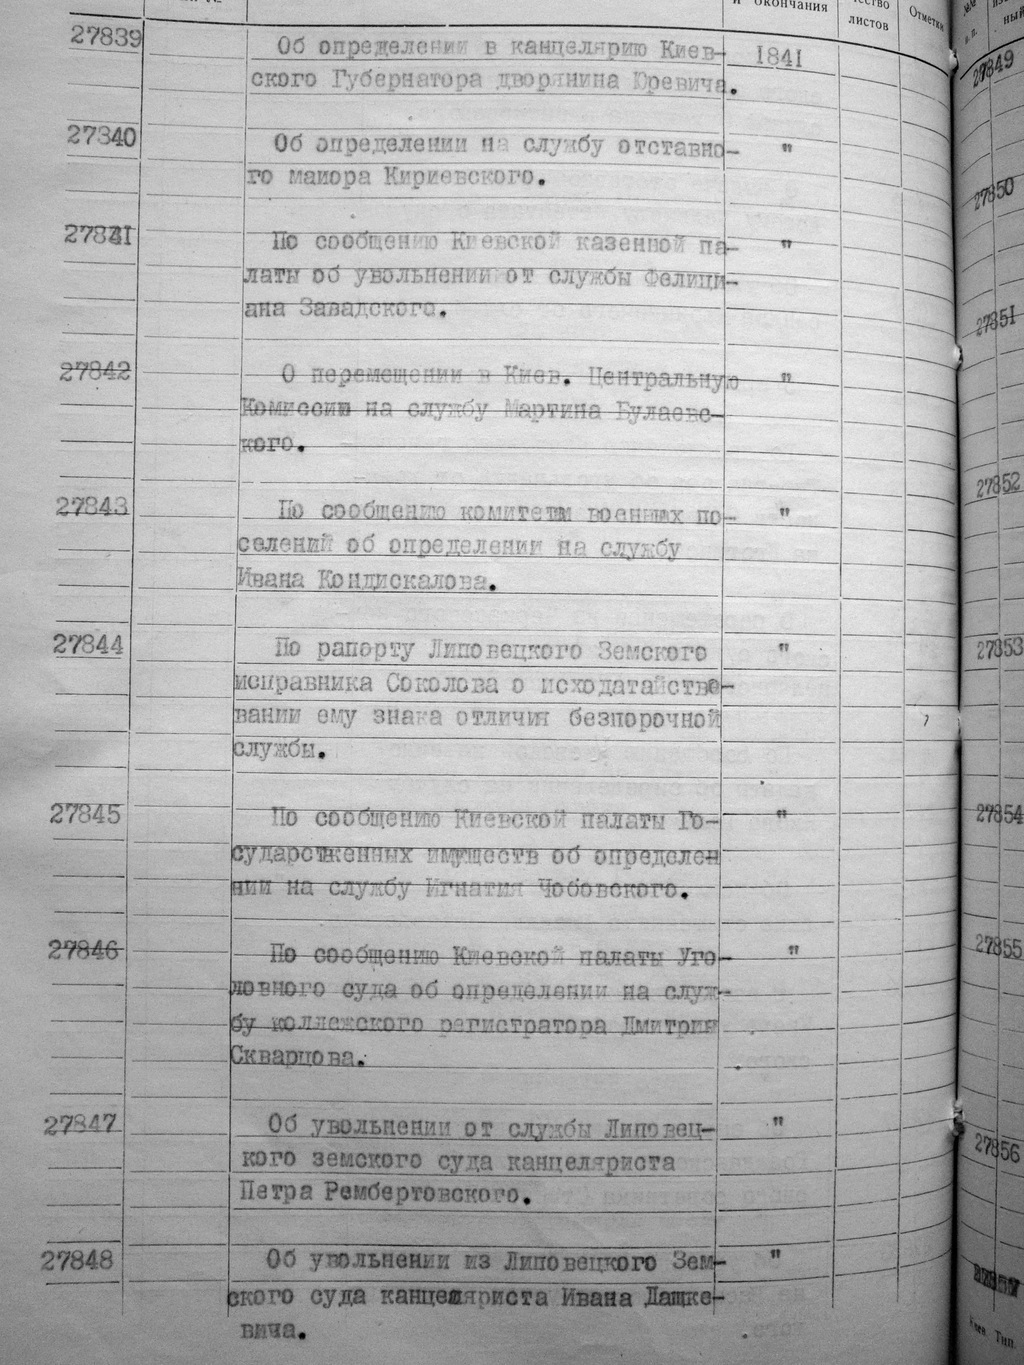 и окончания
листов
Отметки
27839
Об определении в канцелярию Киев-
1841
ского Губернатора дворянина Юревича.
27840
Об определении на службу отставно-
"
го маиора Кириевского.
27841
По сообщению Киевской казенной па-
"
латы об увольнении от службы Фелици-
ана Завадского.
27842
О перемещении в Киев. Центральную
"
Комиссию на службу Мартина Булаевс-
кого.
27843
По сообщению комитета военных по-
"
селений об определении на службу
Ивана Кондискалова.
27844
По рапорту Липовецкого Земского
"
исправника Соколова о исходатайство-
вании ему знака отличия безпорочной
службы.
27845
По сообщению Киевской палаты Го-
"
сударственных имуществ об определен
нии на службу Игнатия Чобовского.
27846
По сообщению Киевской палаты Уго-
"
ловного суда об определении на служ-
бу коллежского регистратора Дмитрия
Скварцова.
27847
Об увольнении от службы Липовец-
"
кого земского суда канцеляриста
Петра Рембертовского.
27848
Об увольнении из Липовецкого Зем-
"
ского суда канцеляриста Ивана Дашке-
вича.
27849
27850
27851
27852
27853
27854
27855
27856